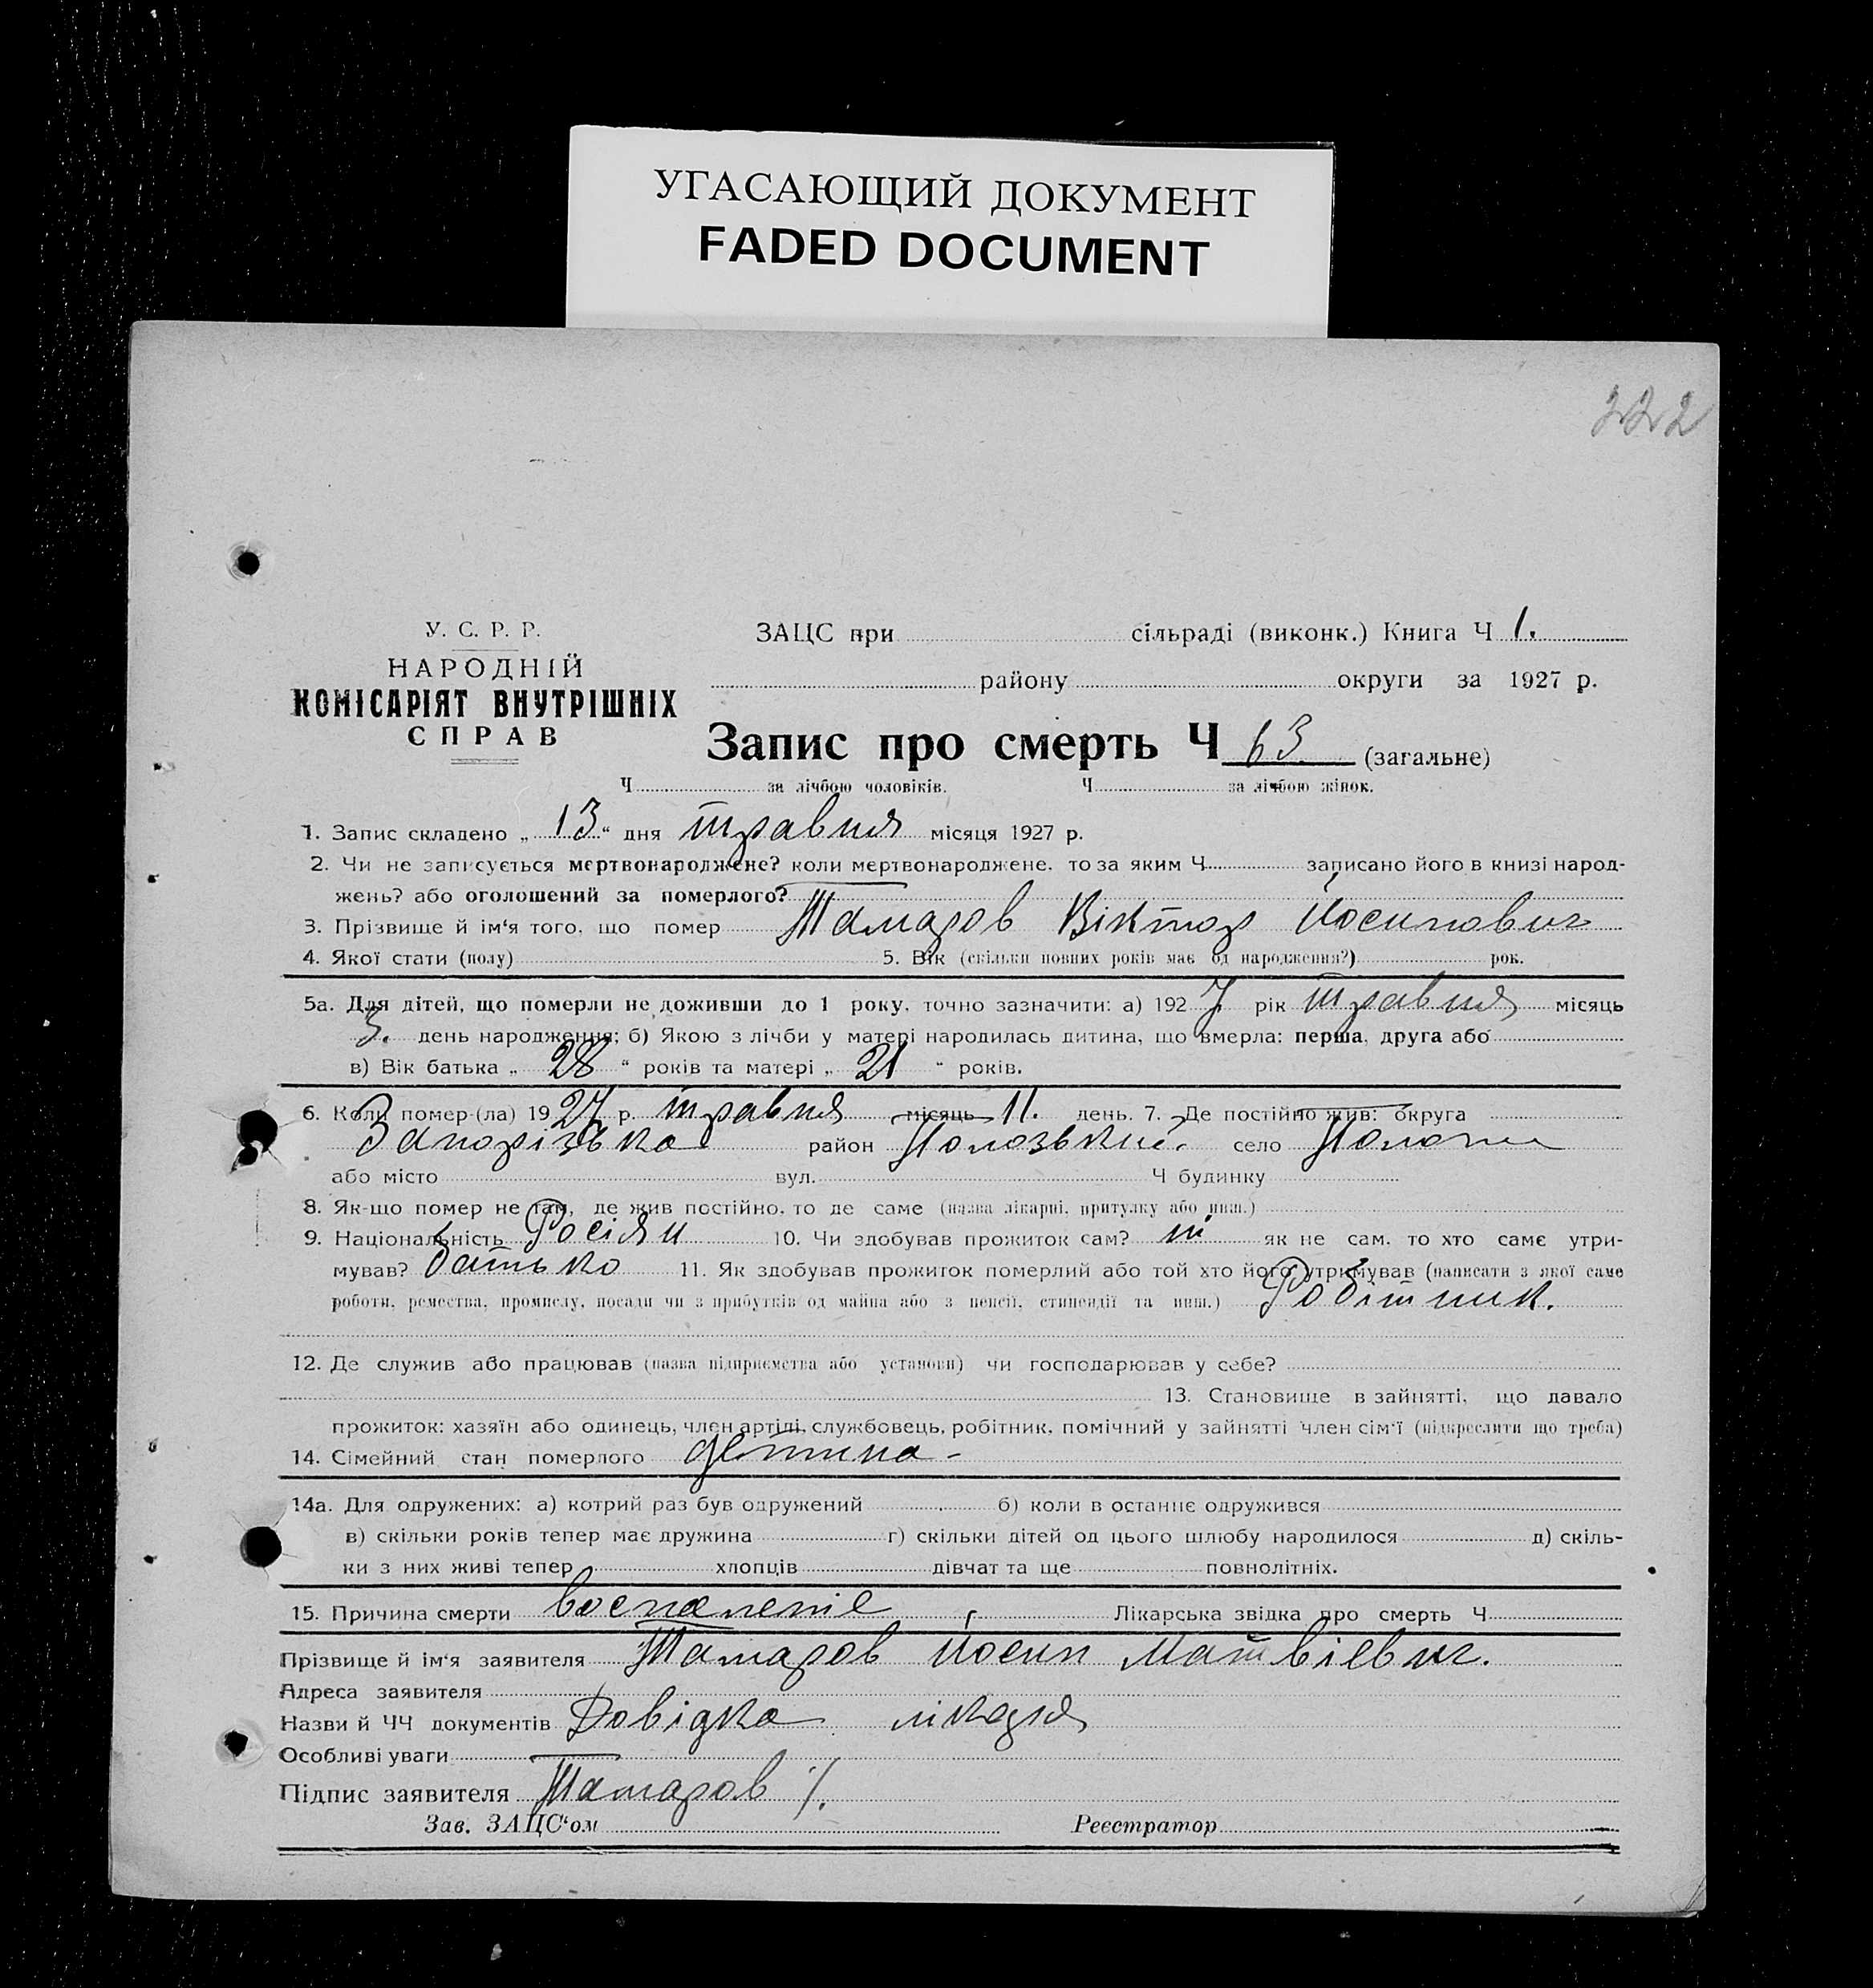 УГАСАЮЩИЙ ДОКУМЕНТ
FADED DOCUMENT
222
У. С. Р. Р.
НАРОДНІЙ
КОМІСАРІЯТ ВНУТРІШНІХ
СПРАВ
ЗАЦС при сільраді (виконк.) Книга Ч 1.
району округи за 1927 р.
Запис про смерть Ч 63 (загальне)
Ч за лічбою чоловіків. Ч за лічбою жінок.
1. Запис складено „ 13 “ дня травня місяця 1927 р.
2. Чи не записується мертвонароджене? коли мертвонароджене, то за яким Ч записано його в книзі народ-
жень? або оголошений за померлого?
3. Прізвище й ім‘я того, що помер Татаров Віктор Йосипович
4. Якої стати (полу) 5. Вік (скільки повних років має од народження?) рок.
5а. Для дітей, що померли не доживши до 1 року, точно зазначити: а) 192 7 рік травня місяць
3. день народження; б) Якою з лічби у матері народилась дитина, що вмерла: перша, друга або
в) Вік батька „ 28 “ років та матері „ 21 “ років.
6. Коли помер-(ла) 19 27 р. травня місяць 11. день. 7. Де постійно жив: округа
Запорізька район Пологський село Пологи
або місто вул. Ч будинку
8. Як-що помер не там, де жив постійно, то де саме (назва лікарні, притулку або инш.)
9. Національність Росіян 10. Чи здобував прожиток сам? ні як не сам, то хто саме утри-
мував? батько 11. Як здобував прожиток померлий або той хто його утримував (написати з якої саме
роботи, ремества, промислу, посади чи з прибутків од майна або з пенсії, стипендії та инш.) Робітник.
12. Де служив або працював (назва підприємства або установи) чи господарював у себе?
13. Становище в зайнятті, що давало
прожиток: хазяїн або одинець, член артілі, службовець, робітник, помічний у зайнятті член сім‘ї (підкреслити що треба)
14. Сімейний стан померлого детина -
14а. Для одружених: а) котрий раз був одружений б) коли в останнє одружився
в) скільки років тепер має дружина г) скільки дітей од цього шлюбу народилося д) скіль-
ки з них живі тепер хлопців дівчат та ще повнолітніх.
15. Причина смерти воспаленіе Лікарська звідка про смерть Ч
Прізвище й ім‘я заявителя Татаров Йосип Матвієвич.
Адреса заявителя
Назви й ЧЧ документів Довідка лікаря
Особливі уваги
Підпис заявителя Татаров
Зав. ЗАЦС‘ом Реєстратор